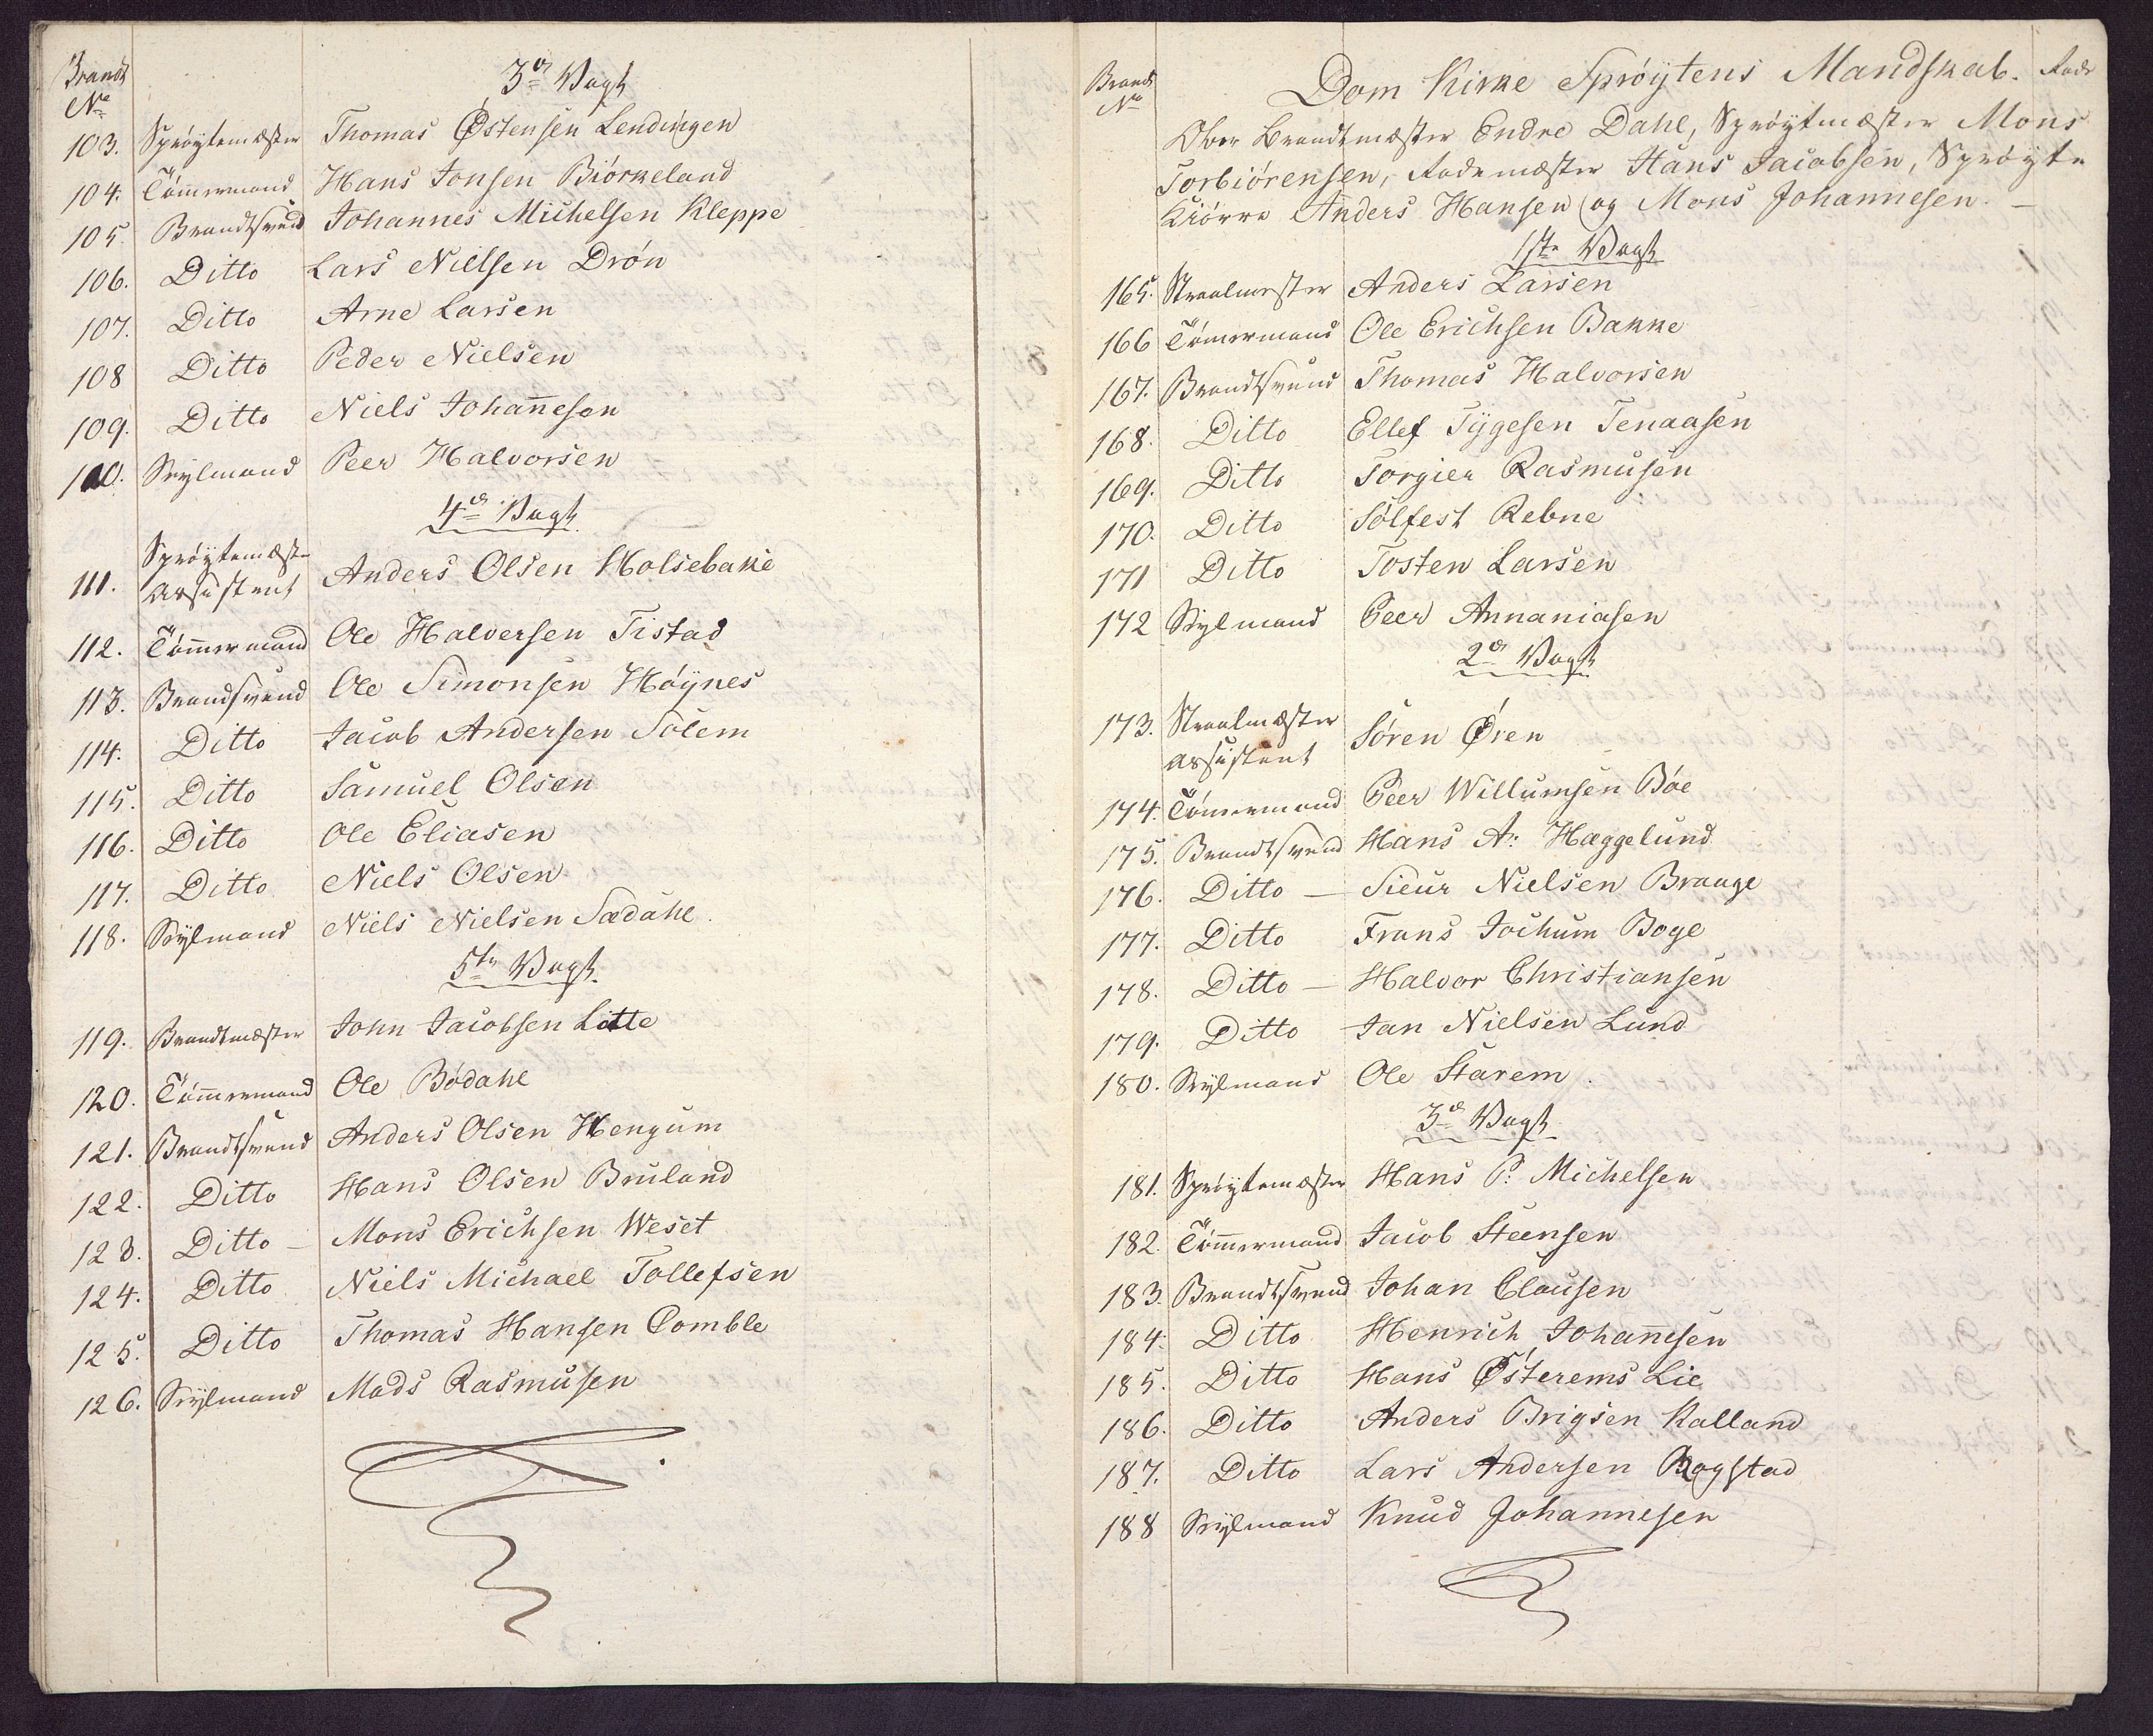 Brandt
No
3de Vagt
103. Sprøytemæster Thomas Østensen Lendingen
104. Tømmermand Hans Jonsen Biörkeland
105. Brandtsvend Johannes Michelsen Kleppe
106. Ditto Lars Nielsen Drön
107. Ditto Arne Larsen
108 Ditto Peder Nielsen
109. Ditto Niels Johannesen
110. Seylmand Peer Halvorsen
4de Vagt
111. Sprøytemæster
Assistent Anders Olsen Holsebake
112. Tømmermand Ole Halversen Tistad
113. Brandsvend Ole Simonsen Höynes
114. Ditto Jacob Andersen Solem
115. Ditto Samuel Olsen
116. Ditto Ole Eliasen
117. Ditto Niels Olsen
118. Seylmand Niels Nielsen Sædahl.
5te Vagt
119. Brandtmæster John Jacobsen Litle
120. Tømmermand Ole Bødahl
121. Brandtsvend Anders Olsen Hengum
122. Ditto Hans Olsen Bruland
123. Ditto – Mons Erichsen Weset
124. Ditto Niels Michael Tollefsen
125. Ditto Thomas Hansen Pomble
126. Seylmand Mads Rasmusen
Brandt
No
Dom Kirke Sprøytens Mandskab. Rode
Ober Brandtmæster Endre Dahl, Sprøytmæster Mons
Torbiörensen, Rodemæster Hans Jacobsen, Sprøyte
Kiörre Anders Hansen og Mons Johannesen. –
1ste Vagt
165. Straalmester Anders Larsen
166 Tømmermand Ole Erichsen Bakke
167. Brandtsvend Thomas Halvorsen
168. Ditto Ellef Tygesen Tenaasen
169. Ditto Torgier Rasmusen
170. Ditto Sölfest Rebne
171 Ditto Tosten Larsen
172 Seylmand Peer Annaniasen
2de Vagt
173. Straalmæster
Assistent Sören Øren
174. Tømmermand Peer Willumsen Böe
175. Brandtsvend Hans A: Hæggelund
176. Ditto – Sieur Nielsen Braage
177. Ditto Frans Jochum Boge
178. Ditto – Halvor Christiansen
179. Ditto Jan Nielsen Lund
180. Seylmand Ole Starem.
3de Vagt
181. Sprøytemæster Hans P: Michelsen
182. Tømmermand Jacob Steensen
183. Brandtsvend Johan Clausen
184. Ditto Henrich Johannesen
185. Ditto Hans Østerems Lie
186. Ditto Anders Brigsen Kalland
187. Ditto Lars Andersen Rogstad
188 Seylmand Knud Johannesen